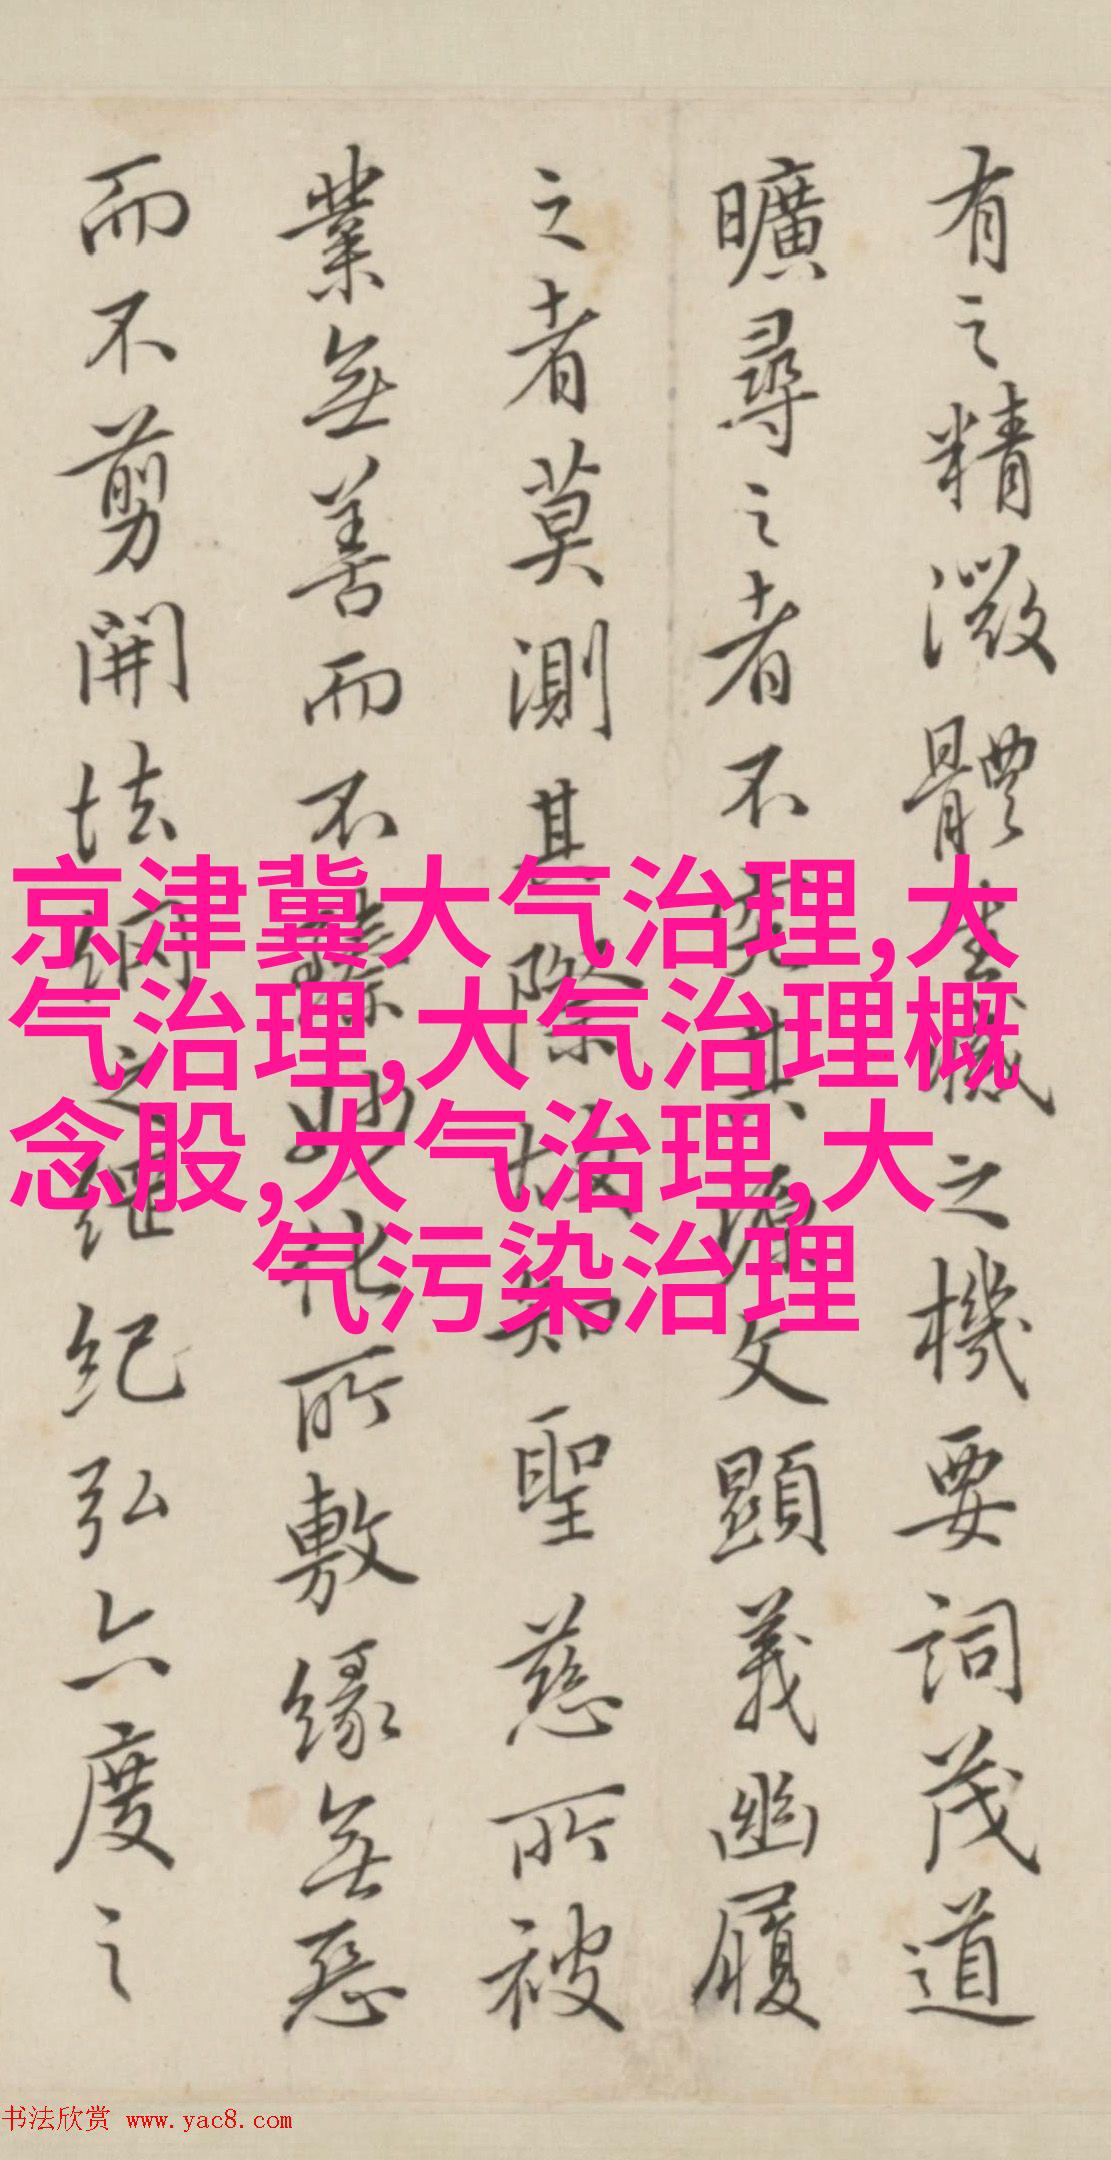 有之精微體生滅之機要詞茂道
曠尋之者不究其源文顯義幽履
之者莫測其際故知聖慈所被
業無善而不臻妙化所敷緣無惡
而不剪開法網之綱紀弘六度之
京津冀大气治理,大
气治理,大气治理概
念股,大气治理,大
气污染治理
书法欣赏 www.yac8.com